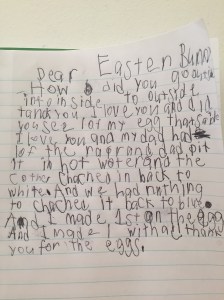 Dear Easter Bunny
How did you go outside
into inside to outside
I love you and did
you see lot my egg that
I love you and my dad had
lot the and dad pit
it in hot water and the
cother chached in back to
white. And we had nuthing
to chachev it back to blue.
And I made 1st on the egg
And I made I with all thank
you for the eggs.